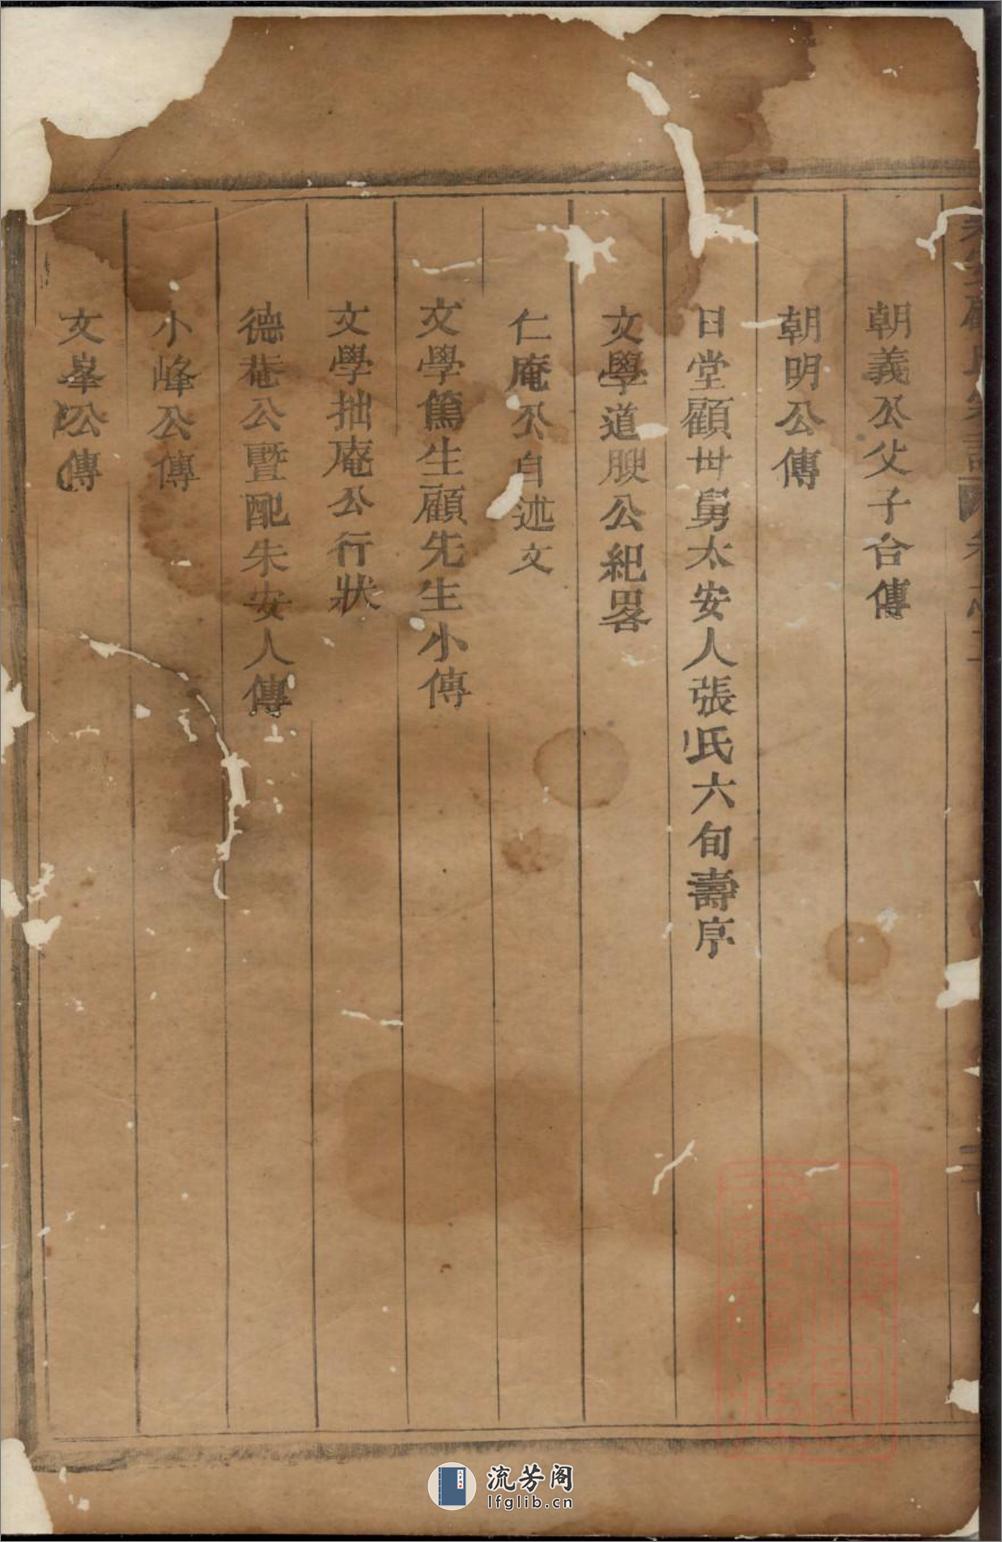 朝義公父子合傳
朝明公傳
日堂顧世舅太安人張氏六旬壽序
文學道腴公紀畧
仁庵公自述文
文學篤生顧先生小傳
文學拙庵公行狀
德菴公暨配朱安人傳
小峰公傳
文峯公傳
流芳阁
lfglib.cn